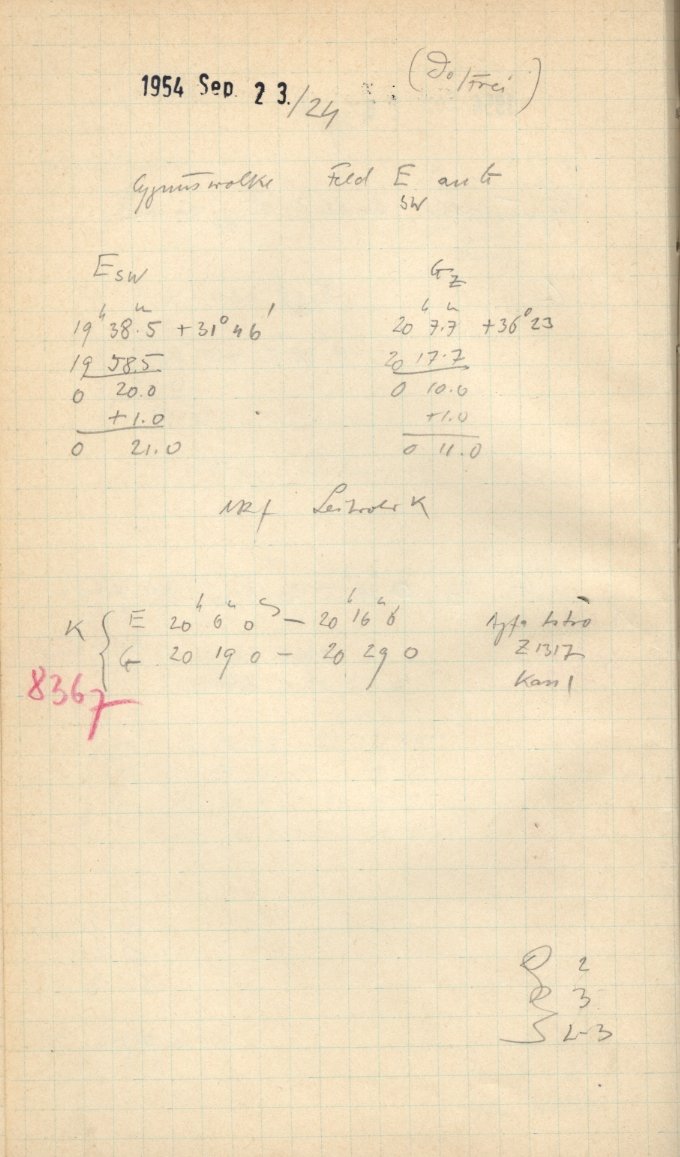 1954 Sep. 23./24 (Do/Frei)
Cygnuswolke Feld E SW und G
E SW
19h 38m.5 +31° 46'
19 58.5
0 20.0
+1.0
0 21.0
G Z
20h 7m.7 +36° 23
20 17.7
0 10.0
+1.0
0 11.0
Leitrohr K
K { E 20h 6m 0s – 20h 16m 0
G 20 19 0 – 20 29 0
8367
Agfa Astro
Z 1317
Kass 1
2
R 3
S 2-3